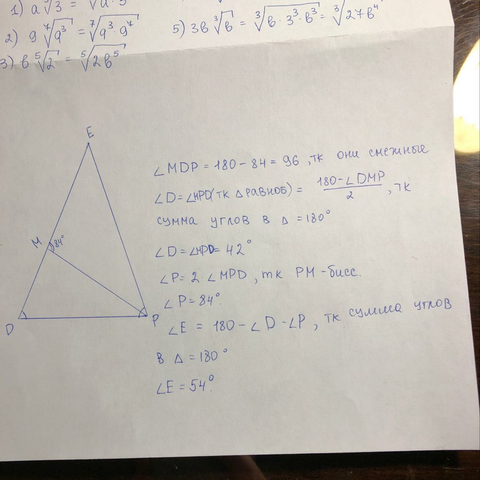 1) a√3 = √a·3
2) 9 ⁷√9³ = ⁷√9³·9⁷
5) 3b ³√b = ³√b·3³·b³ = ³√27b⁴
3) b ⁵√2 = ⁵√2b⁵
E
M
84°
D
P
∠MDP = 180 - 84 = 96, тк они смежные
∠D = ∠MPD (тк Δ равноб) = 180-∠DMP / 2, тк
сумма углов в Δ = 180°
∠D = ∠MPD = 42°
∠P = 2 ∠MPD, тк PM - бисс.
∠P = 84°
∠E = 180 - ∠D - ∠P, тк сумма углов
в Δ = 180°
∠E = 54°